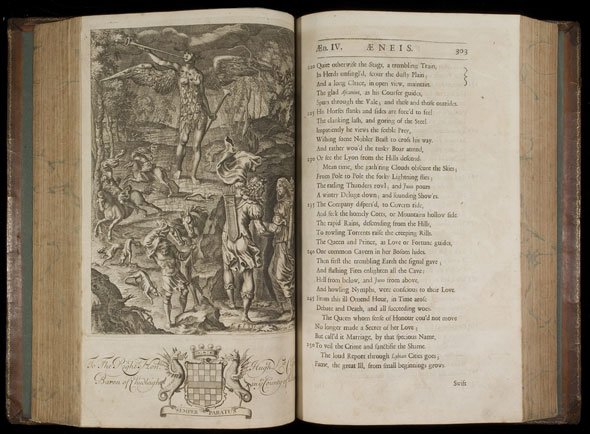 To The Right Hon. Hugh
Baron of Chudleigh County of
SEMPER PARATUS
Æn. IV. ÆNEIS. 303
220 Quite otherwise the Stags, a trembling Train,
In Herds unsingl'd, scour the dusty Plain;
And a long Chace, in open view, maintain.
The glad Ascanius, as his Courser guides,
Spurs through the Vale; and these and those outrides.
225 His Horses flanks and sides are forc'd to feel
The clanking lash, and goring of the Steel.
Impatiently he views the feeble Prey,
Wishing some Nobler Beast to cross his way.
And rather wou'd the tusky Boar attend,
230 Or see the Lyon from the Hills descend.
Mean time, the gath'ring Clouds obscure the Skies;
From Pole to Pole the forky Lightning flies;
The ratling Thunders rowl; and Juno pours
A wintry Deluge down; and sounding Show'rs.
235 The Company dispers'd, to Coverts ride,
And seek the homely Cotts, or Mountains hollow side.
The rapid Rains, descending from the Hills,
To rowling Torrents raise the creeping Rills.
The Queen and Prince, as Love or Fortune guides,
240 One common Cavern in her Bosom hides.
Then first the trembling Earth the signal gave;
And flashing Fires enlighten all the Cave:
Hell from below, and Juno from above,
And howling Nymphs, were conscious to their Love.
245 From this ill Omend Hour, in Time arose
Debate and Death, and all succeeding woes.
The Queen whom sense of Honour cou'd not move
No longer made a Secret of her Love;
But call'd it Marriage, by that specious Name,
250 To veil the Crime and sanctifie the Shame.
The loud Report through Lybian Cities goes;
Fame, the great Ill, from small beginnings grows.
Swift